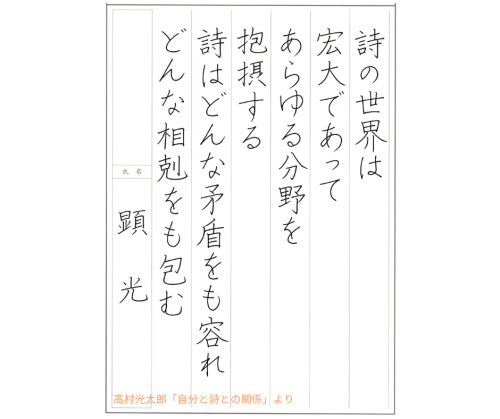 詩の世界は
宏大であって
あらゆる分野を
抱摂する
詩はどんな矛盾をも容れ
どんな相剋をも包む
氏名
顕光
高村光太郎「自分と詩との関係」より